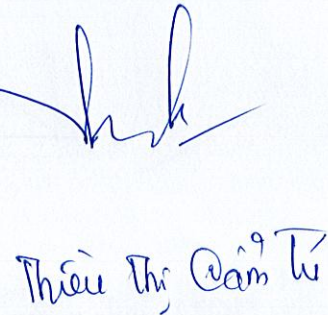 Thiều Thị Cẩm Tú